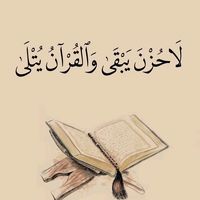 لَا حُزْنَ يَبْقَى وَٱلْقُرْآنُ يُتْلَى